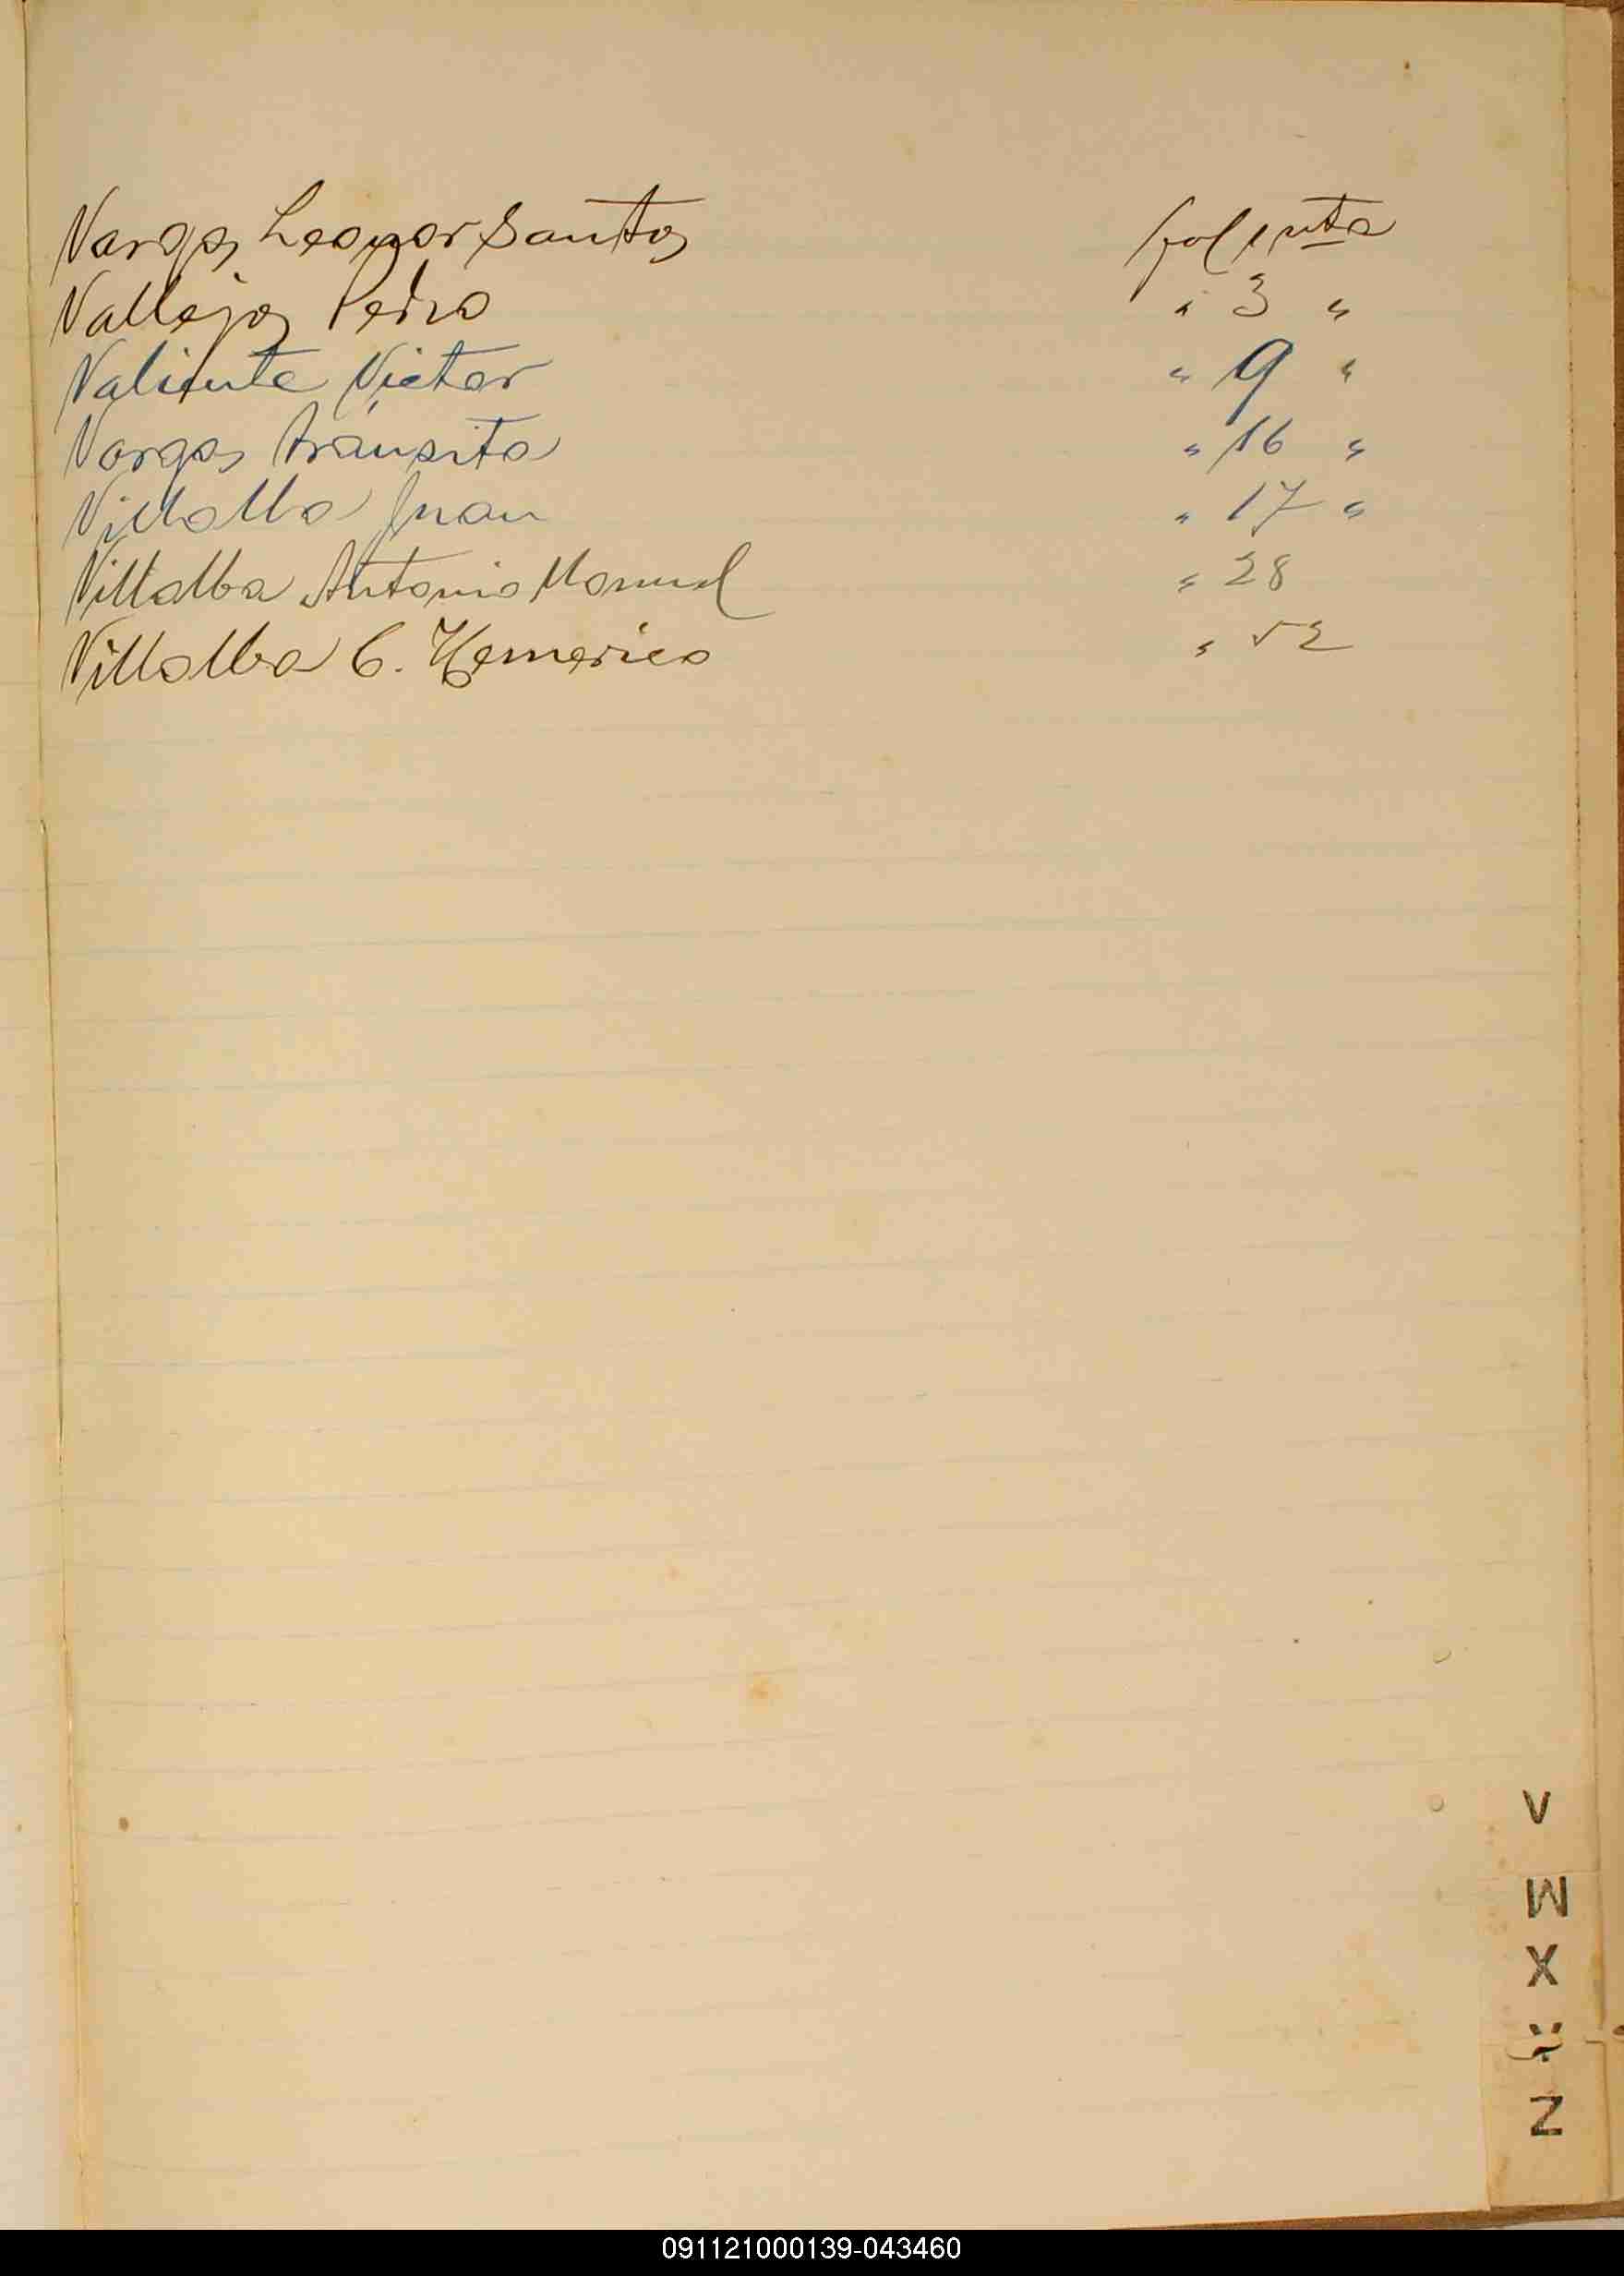 Vargas Leonor Santos fol 1 vta
Vallejos Pedro " 3 "
Valiente Victor " 9 "
Vargas tránsito " 16 "
Villalba Juan " 17 "
Villalba Antonio Manuel " 28
Villalba C. " 52
V
W
X
Y
Z
091121000139-043460